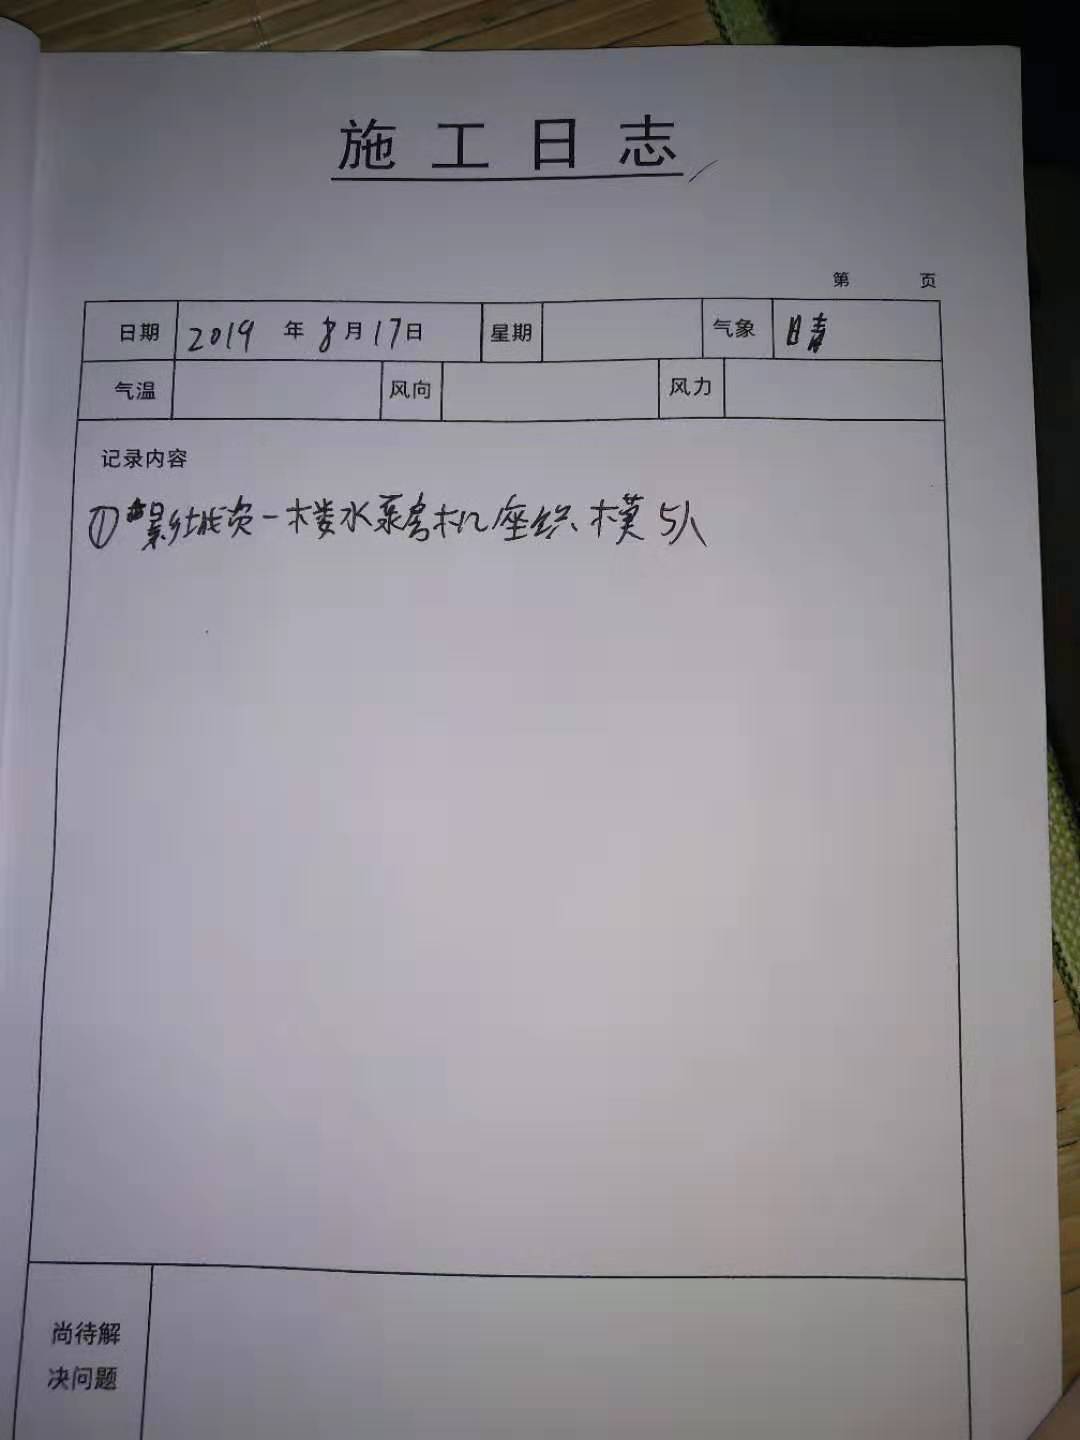 施工日志
第 页
日期 2019 年 8 月 17 日 星期 气象 晴
气温 风向 风力
记录内容
① 影城 一楼水泵房机座 模 5人
尚待解
决问题